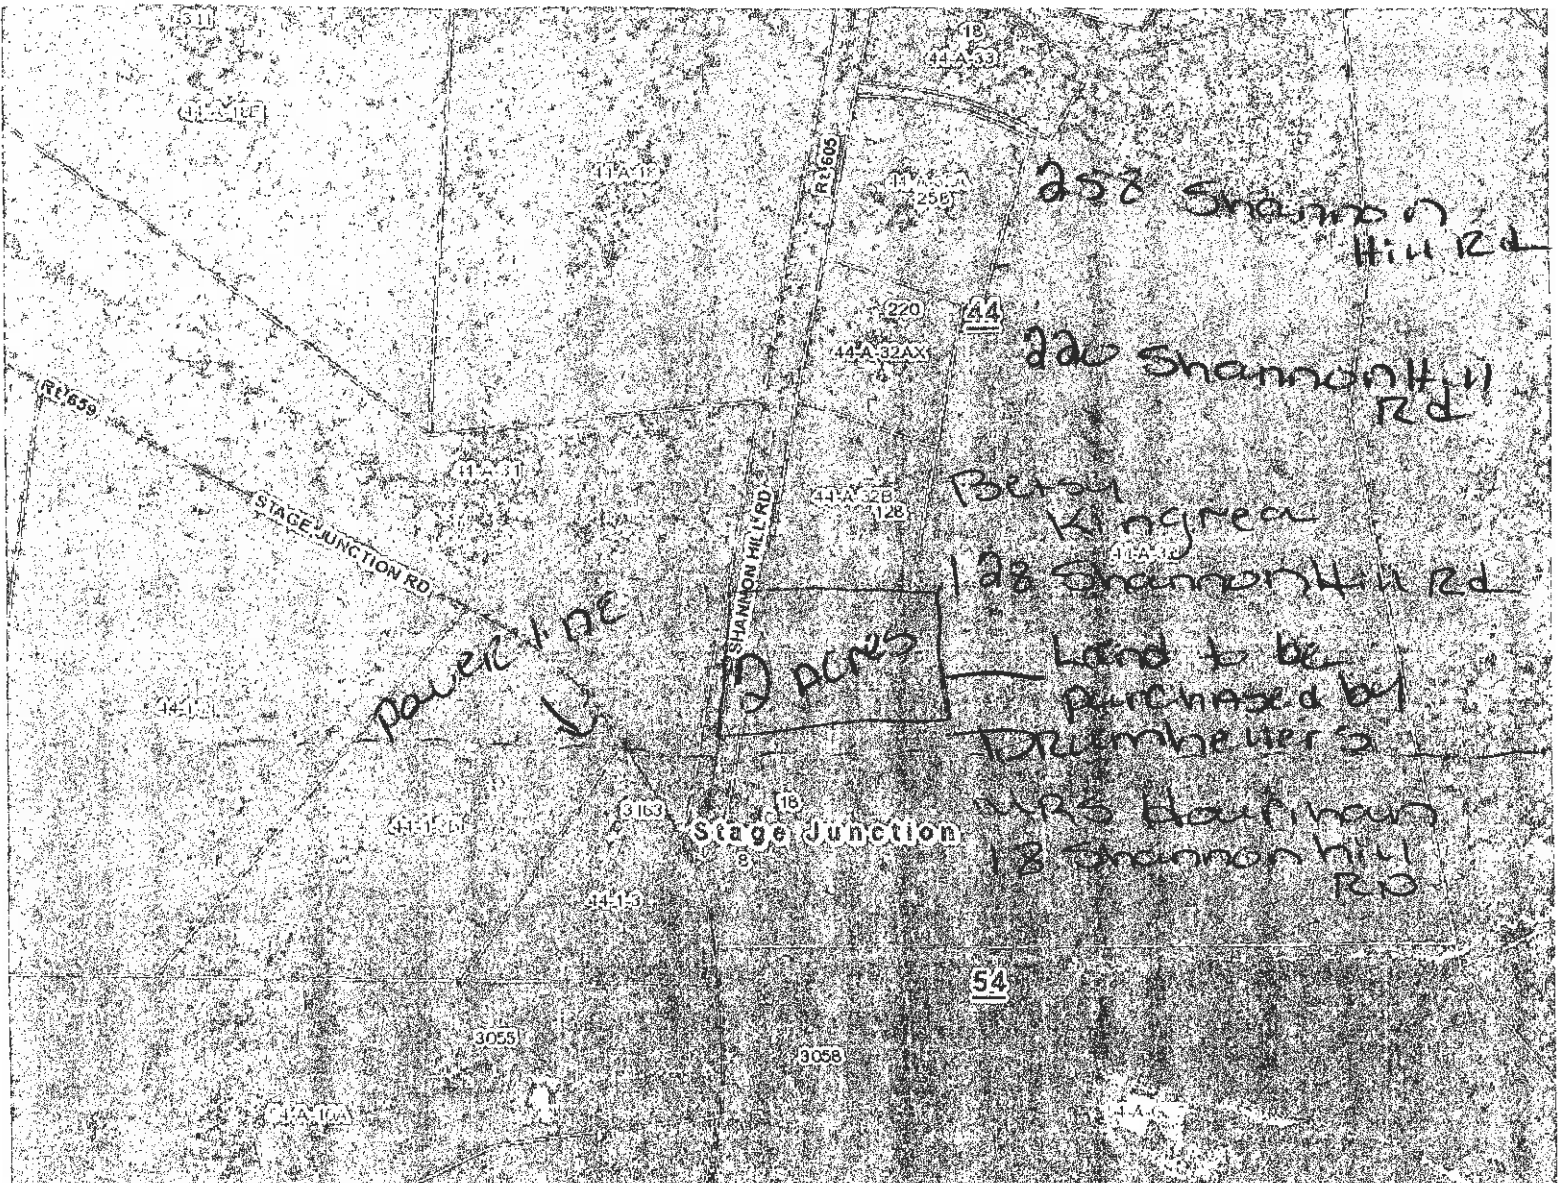 311
18
44-A-33
Rt 605
258 Shannon
Hill Rd
220
44
44-A-32AX
220 Shannon Hill
Rd
Rt 659
STAGE JUNCTION RD
44-A-31
44-A-32B
128
SHANNON HILL RD
Betsy
Kingrea
128 Shannon Hill Rd
POWER LINE
2 ACres
Land to be
purchased by
DRumheller's
44-1-1
3163
18
Stage Junction
8
MRS Houtinan
18 Shannon hill
RD
44-1-3
54
3055
3058